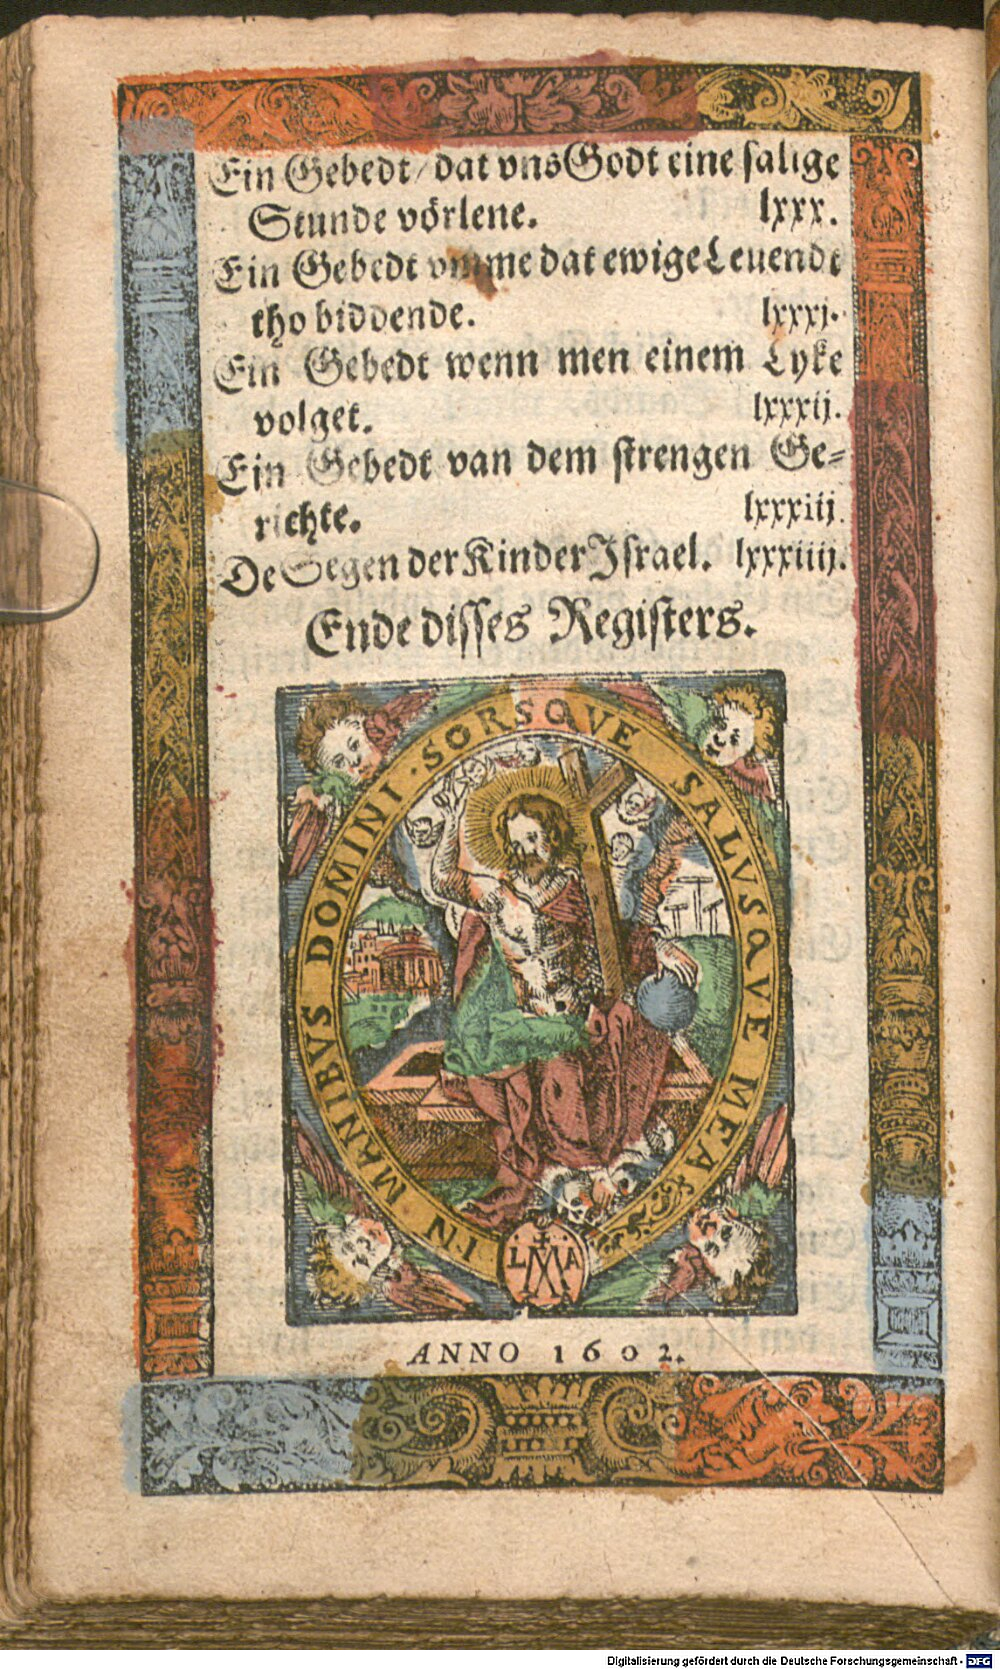 Ein Gebedt / dat vns Godt eine salige
Stunde vörlene. lxxx.
Ein Gebedt vmme dat ewige Leuendt
tho biddende. lxxxj.
Ein Gebedt wenn men einem Lyke
volget. lxxxij.
Ein Gebedt van dem strengen Ge=
richte. lxxxiij.
De Segen der Kinder Israel. lxxxiiij.
Ende disses Registers.
IN MANIBVS DOMINI · SORSQVE SALVSQVE MEA
L M A
ANNO 1602.
Digitalisierung gefördert durch die Deutsche Forschungsgemeinschaft - DFG